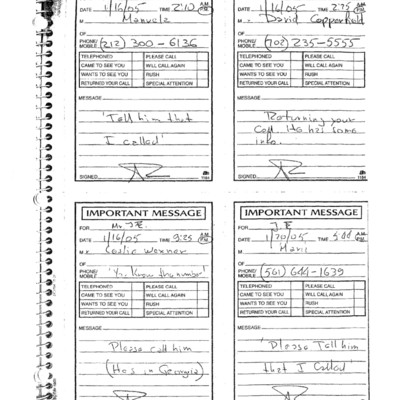 DATE 1/16/05 TIME 2:10 A.M. P.M.
M. Manuela
OF
PHONE/ MOBILE (212) 300-6136
TELEPHONED PLEASE CALL
CAME TO SEE YOU WILL CALL AGAIN
WANTS TO SEE YOU RUSH
RETURNED YOUR CALL SPECIAL ATTENTION
MESSAGE
'Tell him that
I called'
SIGNED
1184
DATE 1/16/05 TIME A.M. P.M.
M. David Copperfield
OF
PHONE/ MOBILE (702) 235-5555
TELEPHONED PLEASE CALL
CAME TO SEE YOU WILL CALL AGAIN
WANTS TO SEE YOU RUSH
RETURNED YOUR CALL SPECIAL ATTENTION
MESSAGE
Returning your
Call. He has some
info.
SIGNED
1184
IMPORTANT MESSAGE
FOR Mr. J.E.
DATE 1/16/05 TIME A.M. P.M.
M. Leslie Wexner
OF
PHONE/ MOBILE 'Yr. Know the number'
TELEPHONED PLEASE CALL
CAME TO SEE YOU WILL CALL AGAIN
WANTS TO SEE YOU RUSH
RETURNED YOUR CALL SPECIAL ATTENTION
MESSAGE
Please call him
(He is in Georgia)
IMPORTANT MESSAGE
FOR J.E
DATE 1/20/05 TIME 5:00 A.M. P.M.
M.
OF
PHONE/ MOBILE (561) 644-1639
TELEPHONED PLEASE CALL
CAME TO SEE YOU WILL CALL AGAIN
WANTS TO SEE YOU RUSH
RETURNED YOUR CALL SPECIAL ATTENTION
MESSAGE
'Please Tell him
that I Called'